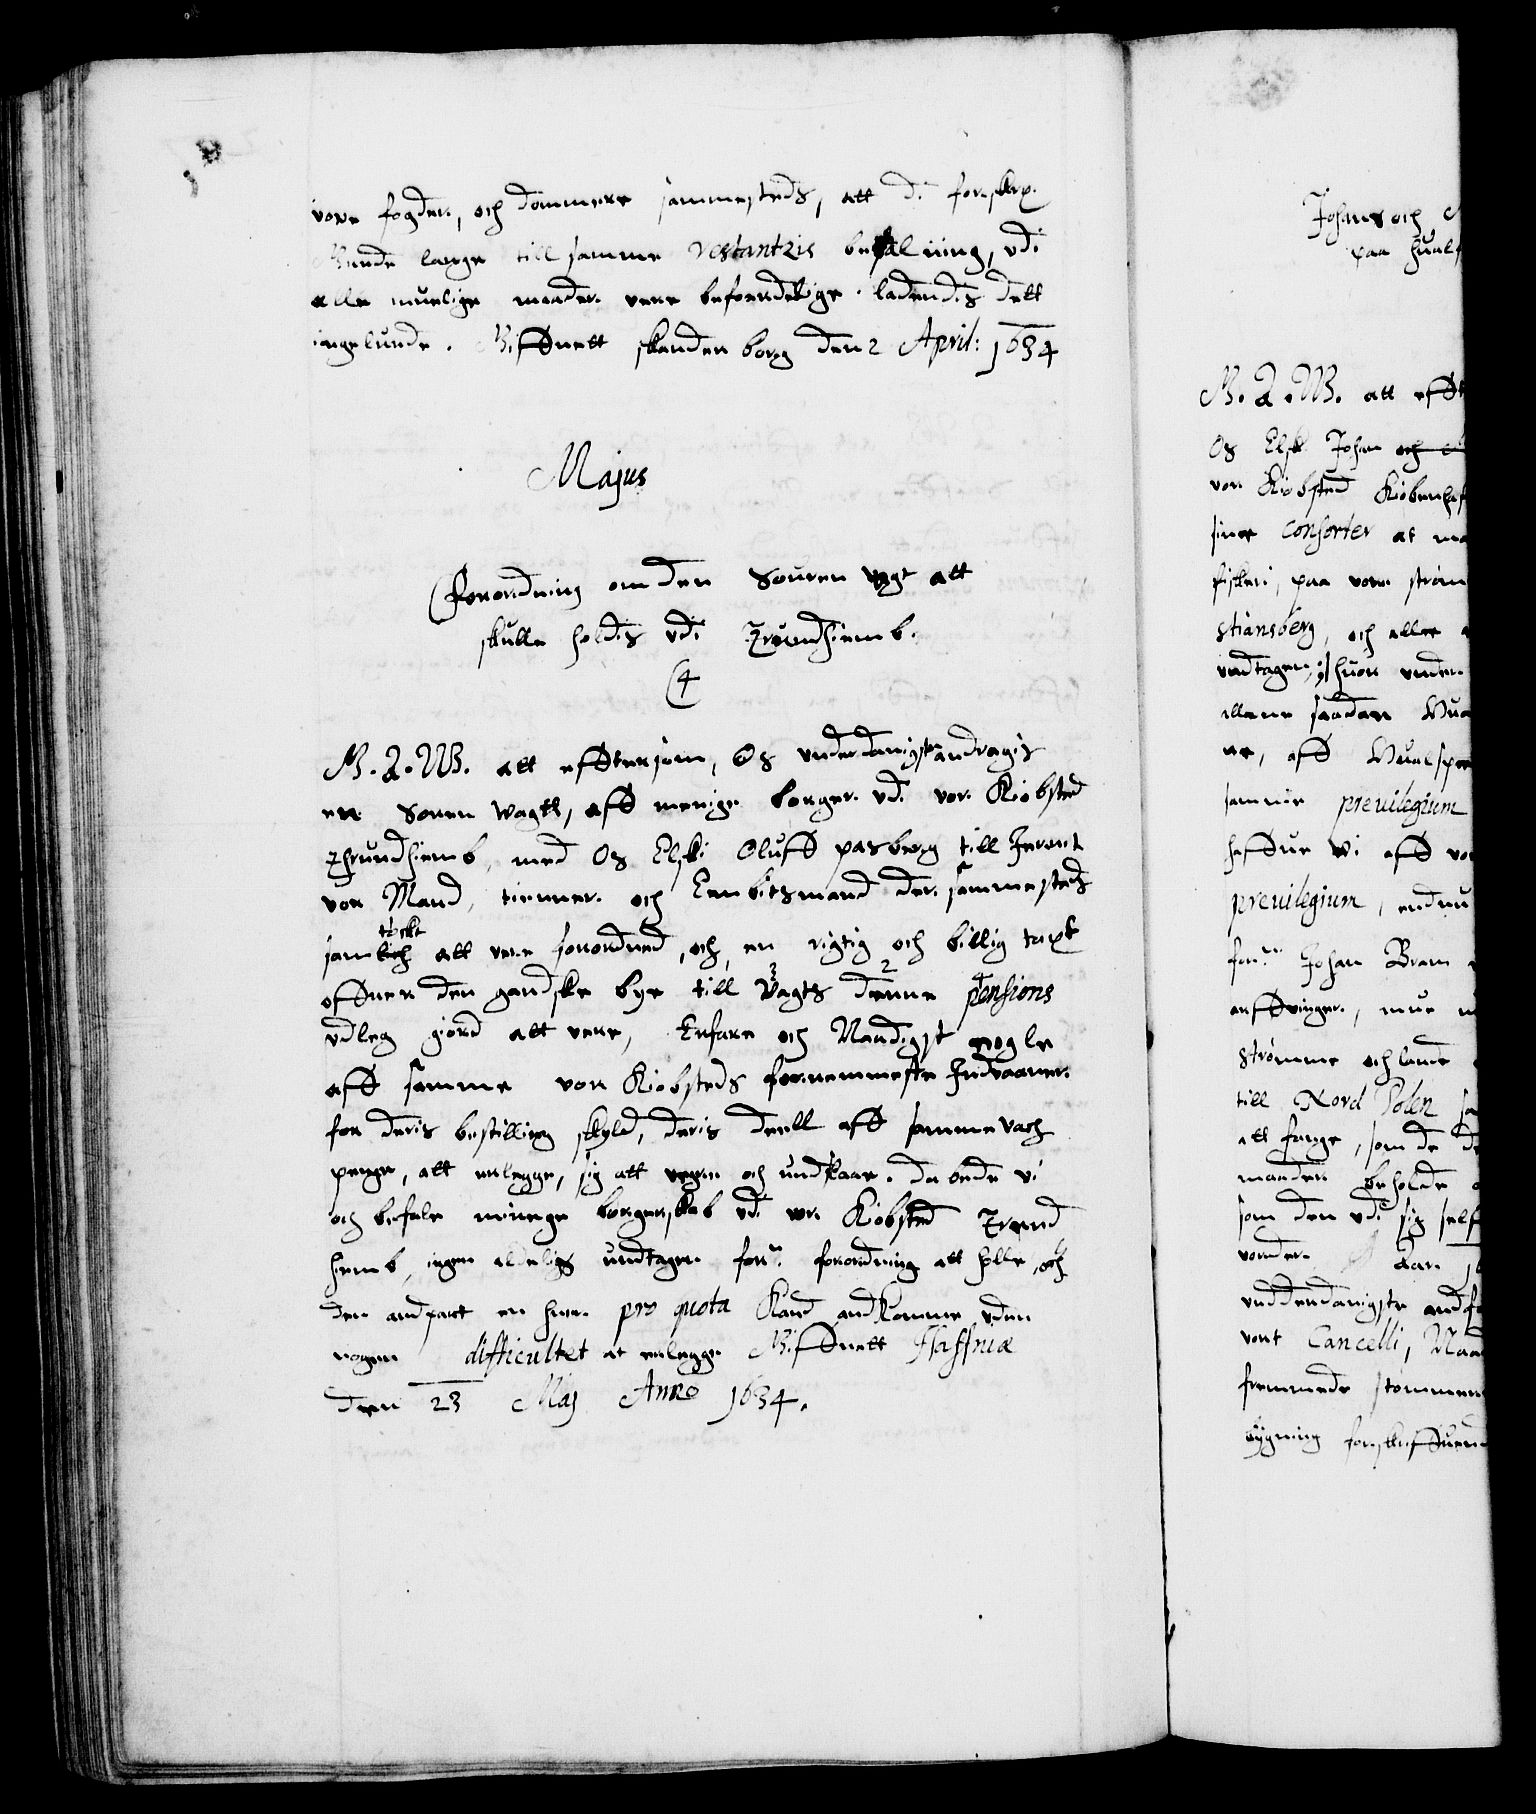 vore fogder, och dommere sammesteds, att di forskrp.
Mende lange till samme restantzis betalning, udi
alle muelige maader vere beforderlige. ladendis dett
ingelunde. Giffuett Skanderborg den 2 April: 1634
Majus
Forordning om den souren wagt att
skulle holdis udi Trundhiemb.
4
G.A.W. att effttersom, Os underdanigste andragis
en souren wagth, aff menige borger udi vor Kiøbsted
Thrundhiemb, med Os Elske Oluff Parsberg till Jernit
vor Mand, tienner och Embitsmand der sammesteds
samtøckt att vere forordned, och, en rigtig och billig taxt
offuer den gandske bye till Vagts denne pensions
udleg giord att vere, Erfare och Naadigst nogle
aff samme vor Kiøbsteds fornemmeste Indvaaner.
for deris bestilling skyld, deris deell aff samme vach
penge, att erlegge, sig att vegre och undskaar. da bede vi
och befale menege borgerskab udi vor Kiøbsted Trund
hiemb, ingen aldeligs undtagen forne forordning att holle, och
den andpart en huer pro quota Kand andkomme uden
nogen difficultet at erlegge Giffuett Haffniæ
den 23 Maj Anno 1634.
Johans och
paa Hualf
G.A.W. att efft
Os Elsk. Johan och
vor Kiøbsted Kiøbenhaf
sine Consorter at ma
fiskeri, paa vore strøm
stiansberg, och alle
undtagen, huor under
allene saadan Hua
re, aff Hualspe
samme preuilegium
haffue wi aff vor
preuilegium, endnu
forne Johan Bram
arffvinger, mue
strømme och lande
till Nord Polen sa
att fange, som de de
mander beholde
som den udi sig self
vorder. Aar
underdanigste andf
vort Cancelli, Naad
fremmede stommen
bygning forskaffuen